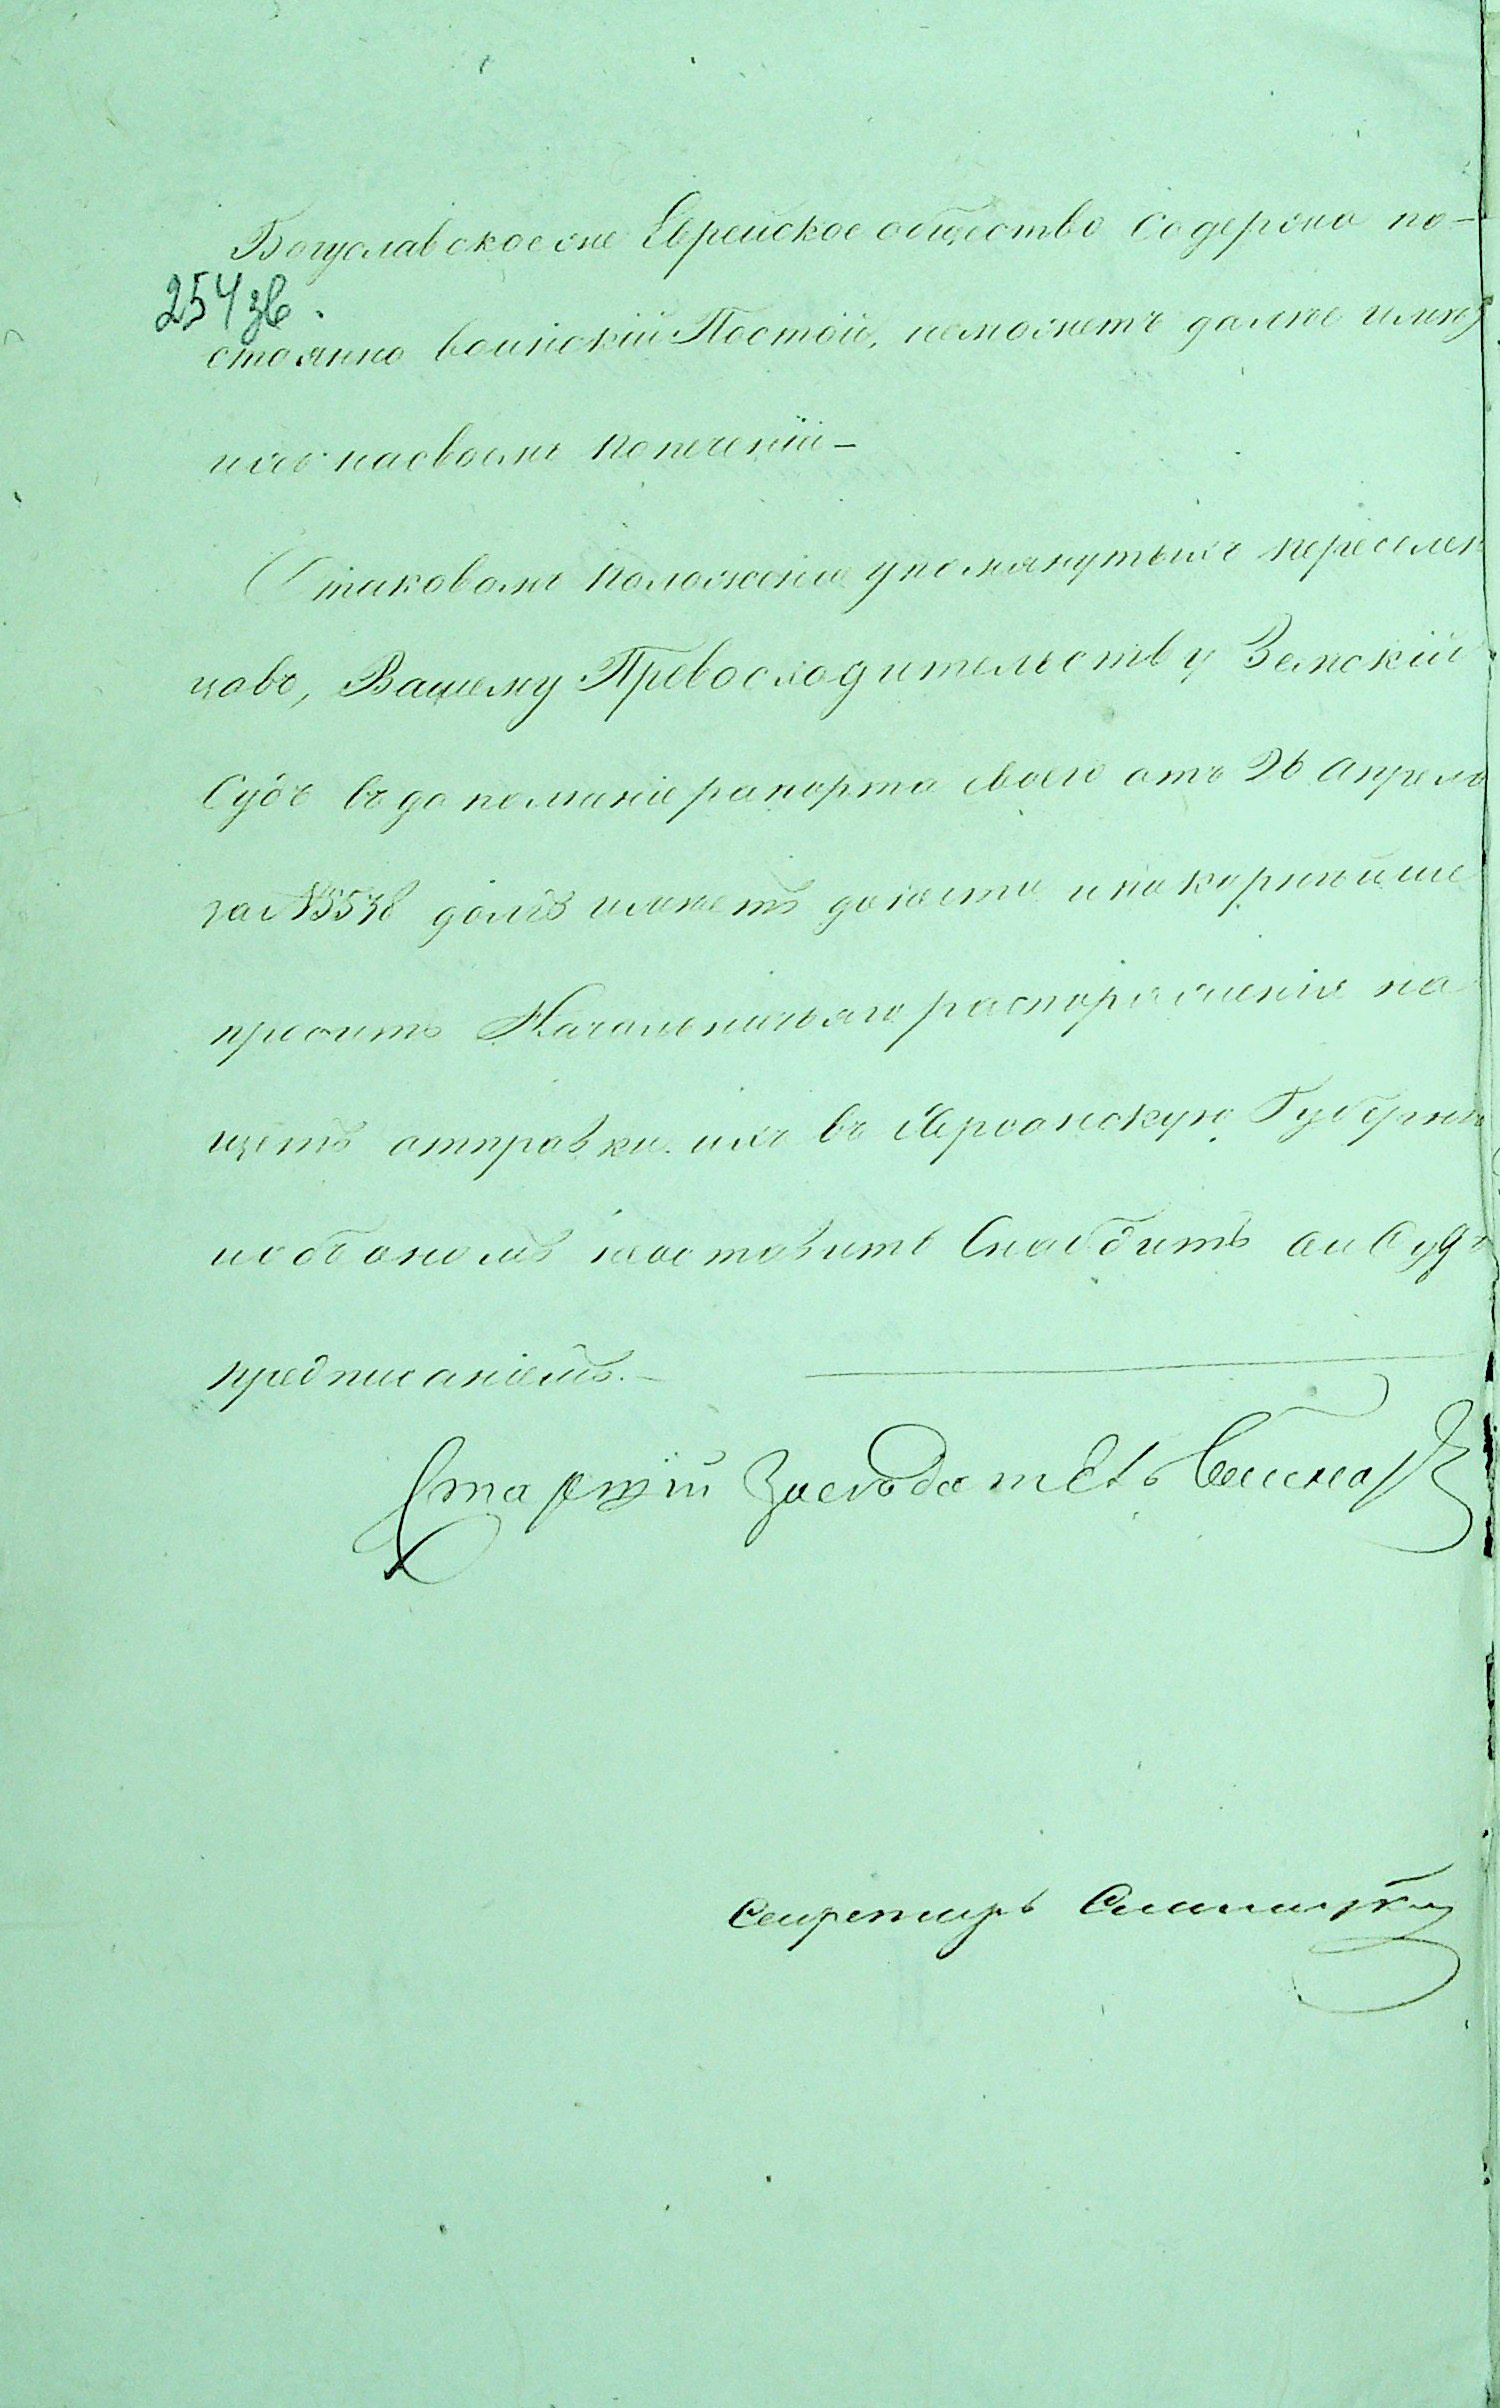 Богуславское же Еврейское общество содержа по-
254 зв.
стоянно воинскій Постой, неможетъ далѣе имѣт
ихъ насвоемъ попеченіи –
О таковомъ положеніи упомянутыхъ переселен
цовъ, Вашему Превосходительству Земскій
Судъ въ дополненіе рапорта своего отъ 26 Апреля
за № долгъ имѣетъ донести и покорнѣйше
просить Начальничьяго распоряженія на
щетъ отправки ихъ въ Херсонскую Губернію
и объ ономъ неоставить Снабдить сей Судъ
предписаніемъ. –
Старшій Засѣдатель
Секретарь